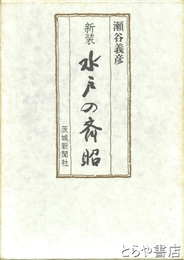 瀬谷義彦
新装
水戸の斉昭
茨城新聞社
とらや書店